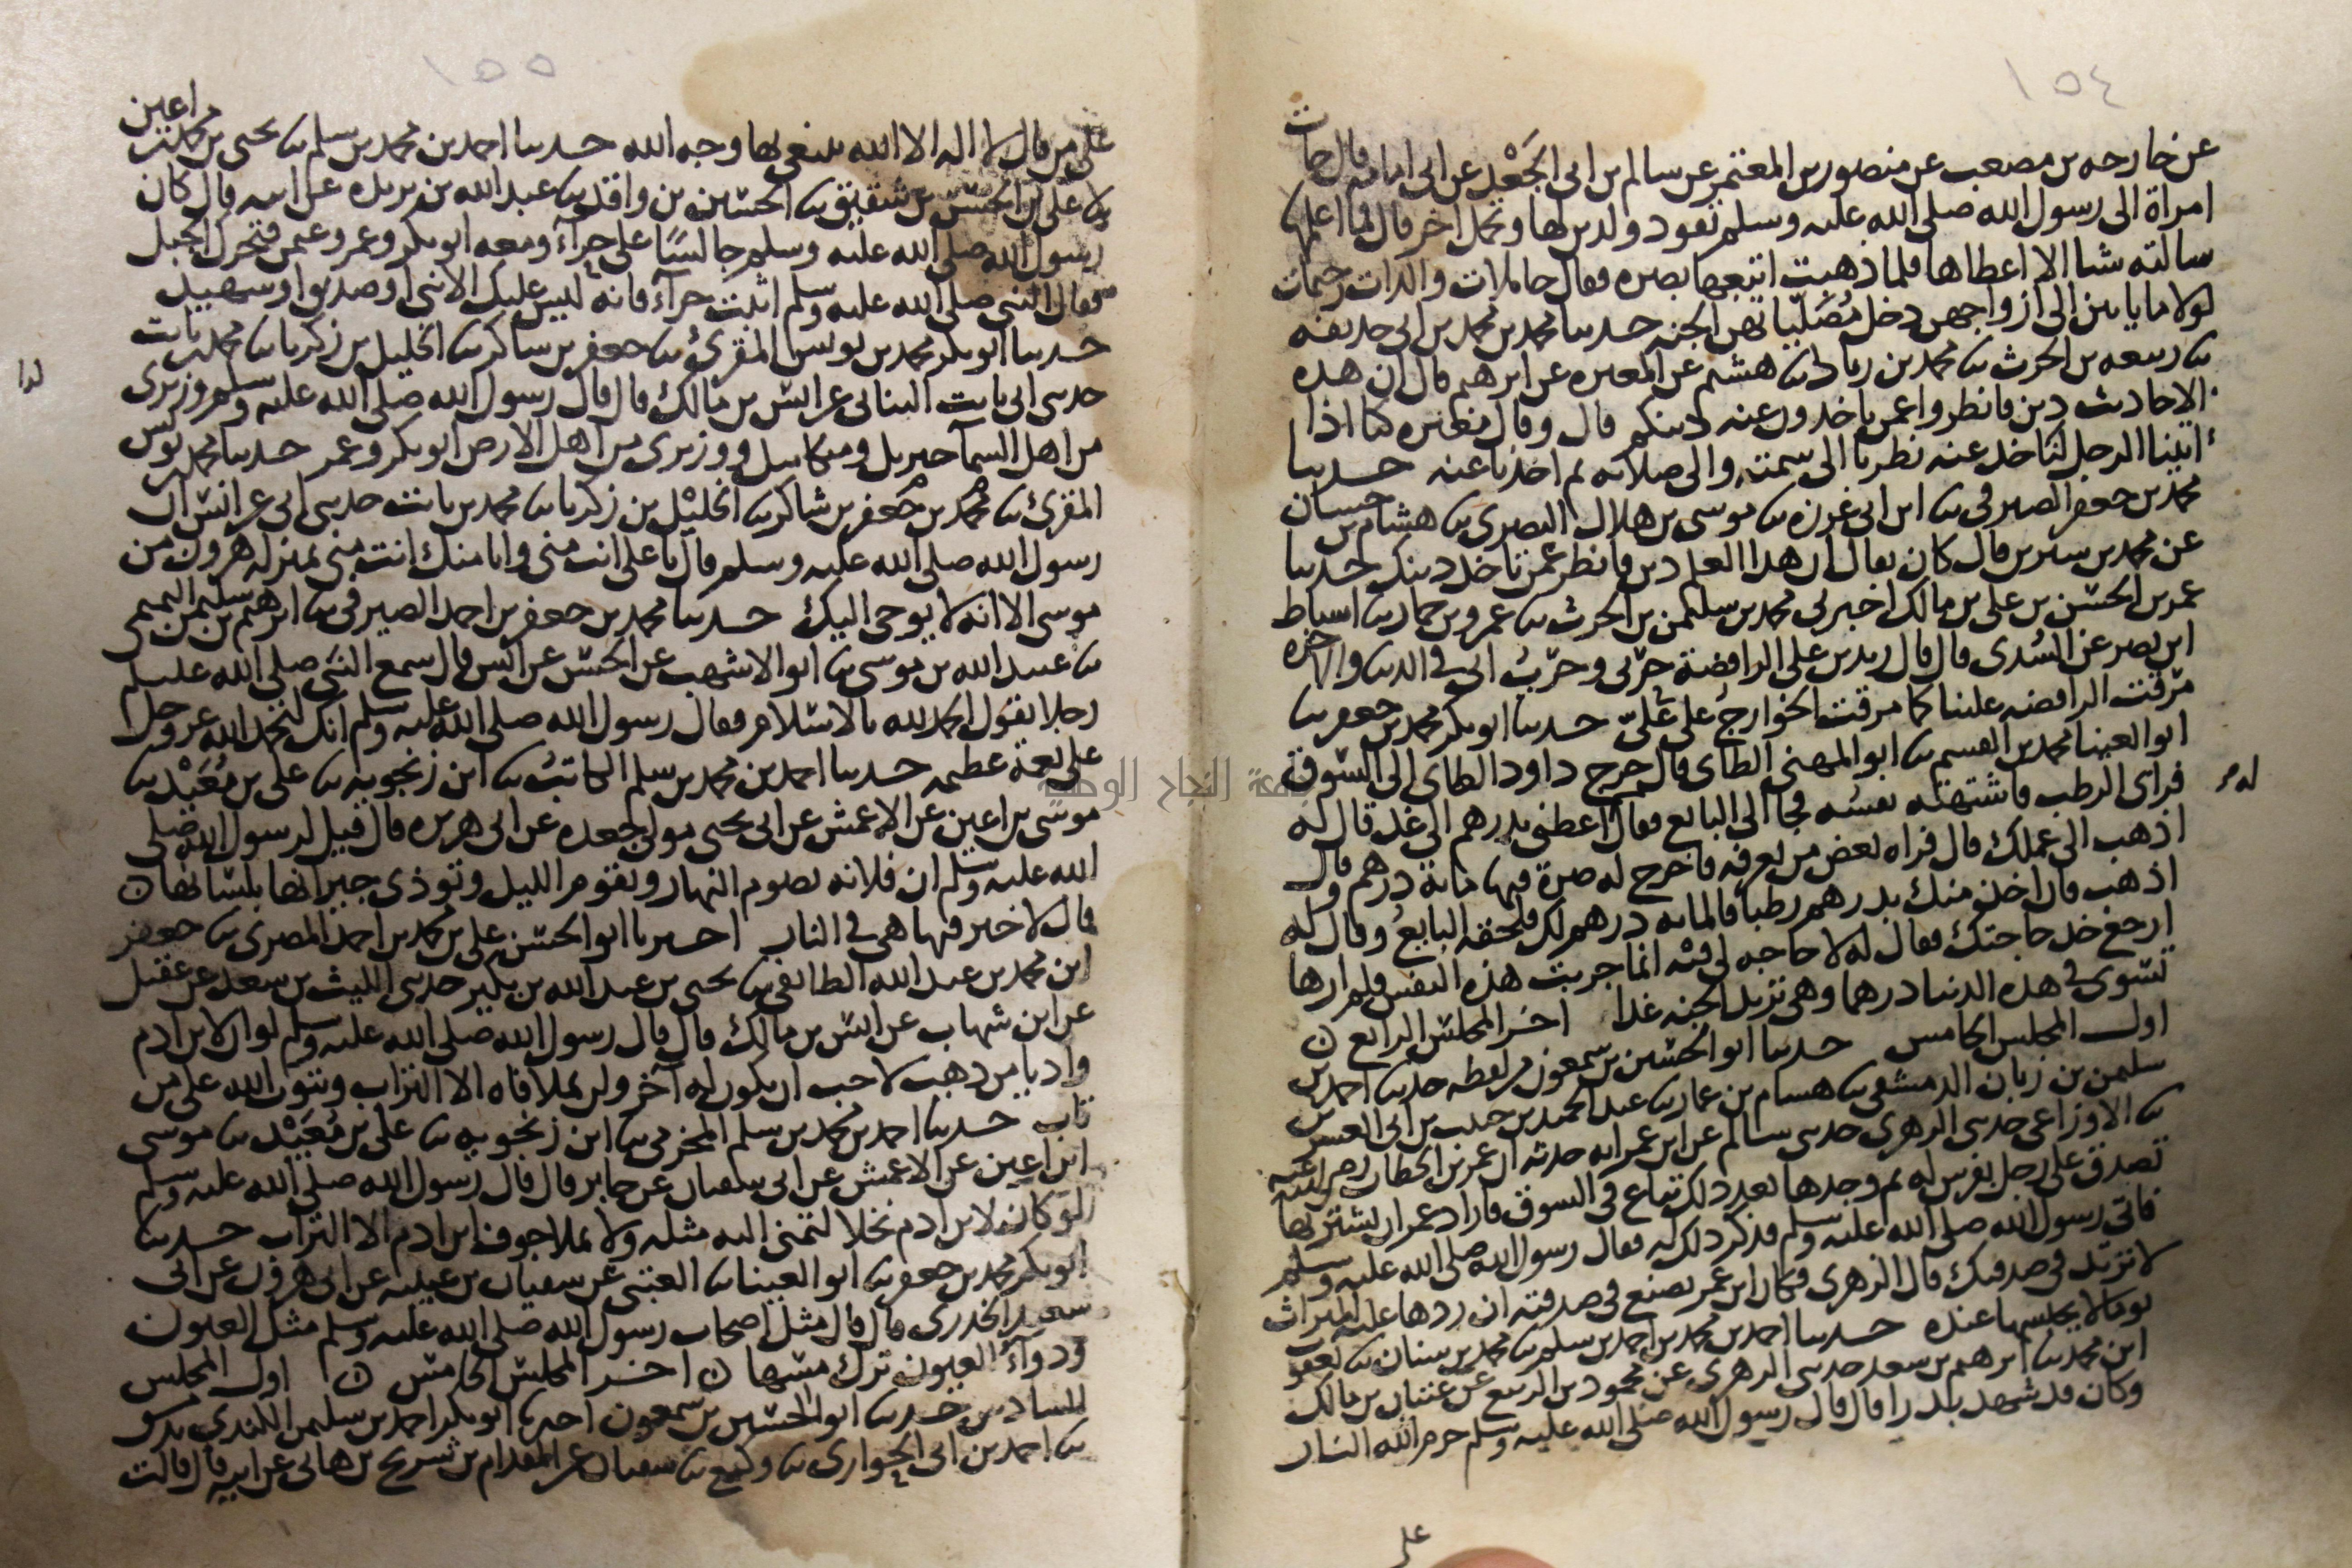 ١٥٤
عن خارجه بن مصعب عن منصور بن المعتمر عن سالم بن ابى الجَعْد عن ابى امامه قال جات
امراة الى رسول الله صلى الله عليه وسلم تقود ولدين لها وتحمل اخر قال فما اعلمها
سالته شيا الا اعطاها فلما ذهبت اتبعها بصره فقال حاملات والدات رحيمات
لولا ما ياتين الى ازواجهن دخل مُصَلّياتهن الجنه حدثنا محمد بن محمد بن ابى حذيفه
ربيعه بن الحرث محمد بن زياد هشيم عن المغيره عن ابرهيم قال ان هذه
الاحاديث دين فانظروا عمن تاخذون عنه دينكم قال وقال مغيره كنا اذا
اتينا الرجل لناخذ عنه نظرنا الى سمته والى صلاته ثم اخذنا عنه حدثنا
محمد بن جعفر الصيرفى ابن ابى غرزه موسى بن هلال البصرى هشام بن حسان
عن محمد بن سيرين قال كان يقال ان هذا العلم دين فانظر عمن تاخذ دينك حدثنا
عمر بن الحسن بن على بن مالك اخبرنى محمد بن سليمن بن الحرث عمرو بن حماد اسباط
ابن نصر عن السُدى قال قال زيد بن على الرافضة حَرْبى وحَرْبُ ابى فى الدنيا والاخره
مرقت الرافضه علينا كما مرقت الخوارجُ على عَلىّ حدثنا ابو بكر محمد بن جعفر
ابو العينا محمد بن القسم ابو المهنى الطاى قال خرج داود الطاى الى السوق
فراى الرطب فاشتهته نفسُه فجا الى البايع فقال اعطنى بدرهم الى غد قال له
اذهب الى عملك قال فراه بعض من يعرفه فاخرج له صرة فيها ماية درهم قال
اذهب فان اخذ منك بدرهم رطبا فالمايه درهم لك فلحقه البايعُ وقال له
ارجع خذ حاجتك فقال له لا حاجه لى فيْه انما جربت هذه النفس فلم ارها
تسوى فى هذه الدنيا درهما وهى تريد الجنه غدا اخر المجلس الرابع
اول المجلس الخامس حدثنا ابو الحسين بن سمعون من لفظه احمد بن
سليمن بن زبان الدمشقى هشام بن عمار عبد الحميد بن حبيب بن ابى العشرين
الاوزاعى حدثنى الزهرى حدثنى سالم عن ابن عمر انه حدثه ان عمر بن الخطاب رضى الله عنه
تصدق على رجل بفرس له ثم وجدها بعد ذلك تباع فى السوق فاراد عمر ان يشتريها
فاتى رسول الله صلى الله عليه وسلم فذكر ذلك له فقال رسول الله صلى الله عليه وسلم
لا ترتد فى صدقتك قال الزهرى فكان ابن عمر يصنع فى صدقته ان ردها عليه الميراث
يوما لا يحبسها عنده حدثنا احمد بن محمد بن احمد بن سلم محمد بن سنان يعقوب
ابن محمد ابرهيم بن سعد حدثنى الزهرى عن محمود بن الربيع عن عتبان بن مالك
وكان قد شهد بدرا قال قال رسول الله صلى الله عليه وسلم حرم الله النار
على
١٥٥
على من قال لا اله الا الله يبتغى بها وجه الله حدثنا احمد بن محمد بن سلم يحيى بن محمد بن اعين
على بن الحسن بن شقيق الحسين بن واقد عبد الله بن بريده عن ابيه قال كان
رسول الله صلى الله عليه وسلم جالسًا على حِرآء ومعه ابو بكر وعمر وعثمن فتحرك الجبل
فقال النبى صلى الله عليه وسلم اثبت حرآء فانه ليس عليك الا نبى او صديق او شهيد
حدثنا ابو بكر محمد بن يونس المقرئ جعفر بن شاكر الخليل بن زكريا محمد بن ثابت
حدثنى ابى ثابت البنانى عن انس بن مالك قال قال رسول الله صلى الله عليه وسلم وزيرى
من اهل السمآ جبريل وميكاييل ووزيرى من اهل الارض ابو بكر وعمر حدثنا محمد بن يونس
المقرئ محمد بن جعفر بن شاكر الخليْل بن زكريا محمد بن ثابت حدثنى ابى عن انس ان
رسول الله صلى الله عليه وسلم قال يا على انت منى وانا منك انت منى بمنزله هرون من
موسى الا انه لا يوحى اليك حدثنا محمد بن جعفر بن احمد الصيرفى ابرهيم بن سليمن التيمى
عبيد الله بن موسى ابو الاشهب عن الحسن عن انس قال سمع النبى صلى الله عليه وسلم
رجلا يقول الحمد لله بالاسلام فقال رسول الله صلى الله عليه وسلم انك لتحمد الله عز وجل
على نعمة عظيمه حدثنا احمد بن محمد بن سلم الكاتبُ ابن زنجويه على بن مُعَبَدْ
موسى بن اعين عن الاعمش عن ابى يحيى مولى جعده عن ابى هريره قال قيل لرسول الله صلى
الله عليه وسلم ان فلانه تصوم النهار وتقوم الليل وتوذى جيرانها بلسانها
قال لا خير فيها هى فى النار اخبرنا ابو الحسن على بن محمد بن احمد المصرى جعفر
ابن محمد بن عبد الله الطايفى يحيى بن عبد الله بن بكير حدثنى الليث بن سعد عن عقيل
عن ابن شهاب عن انس بن مالك قال قال رسول الله صلى الله عليه وسلم لو ان لابن ادم
واديا من ذهب لاحب ان يكون له آخر ولن يملا فاه الا التراب ويتوب الله على من
تاب حدثنا احمد بن محمد بن سلم المخرمى ابن زنجويه على بن مُعَبَدْ موسى
ابن اعين عن الاعمش عن ابى سفيان عن جابر قال قال رسول الله صلى الله عليه وسلم
لو كان لابن ادم نخلا لتمنى اليه مثله ولا يملا جوف ابن ادم الا التراب حدثنا
ابو بكر محمد بن جعفر ابو العينا العتبى عن سفيان بن عيينه عن ابى هرون عن ابى
سعيد الخدرى قال قال مثل اصحاب رسول الله صلى الله عليه وسلم مثل العيون
ودوآء العيون ترك مسها اخر المجلس الخامس اول المجلس
السادس حدثنا ابو الحسين بن سمعون ابو بكر احمد بن سليمن الكندى
احمد بن ابى الحوارى وكيع سفيان عن المقدام بن شريح بن هانى عن ابيه قال قالت
جامعة النجاح الوطنية